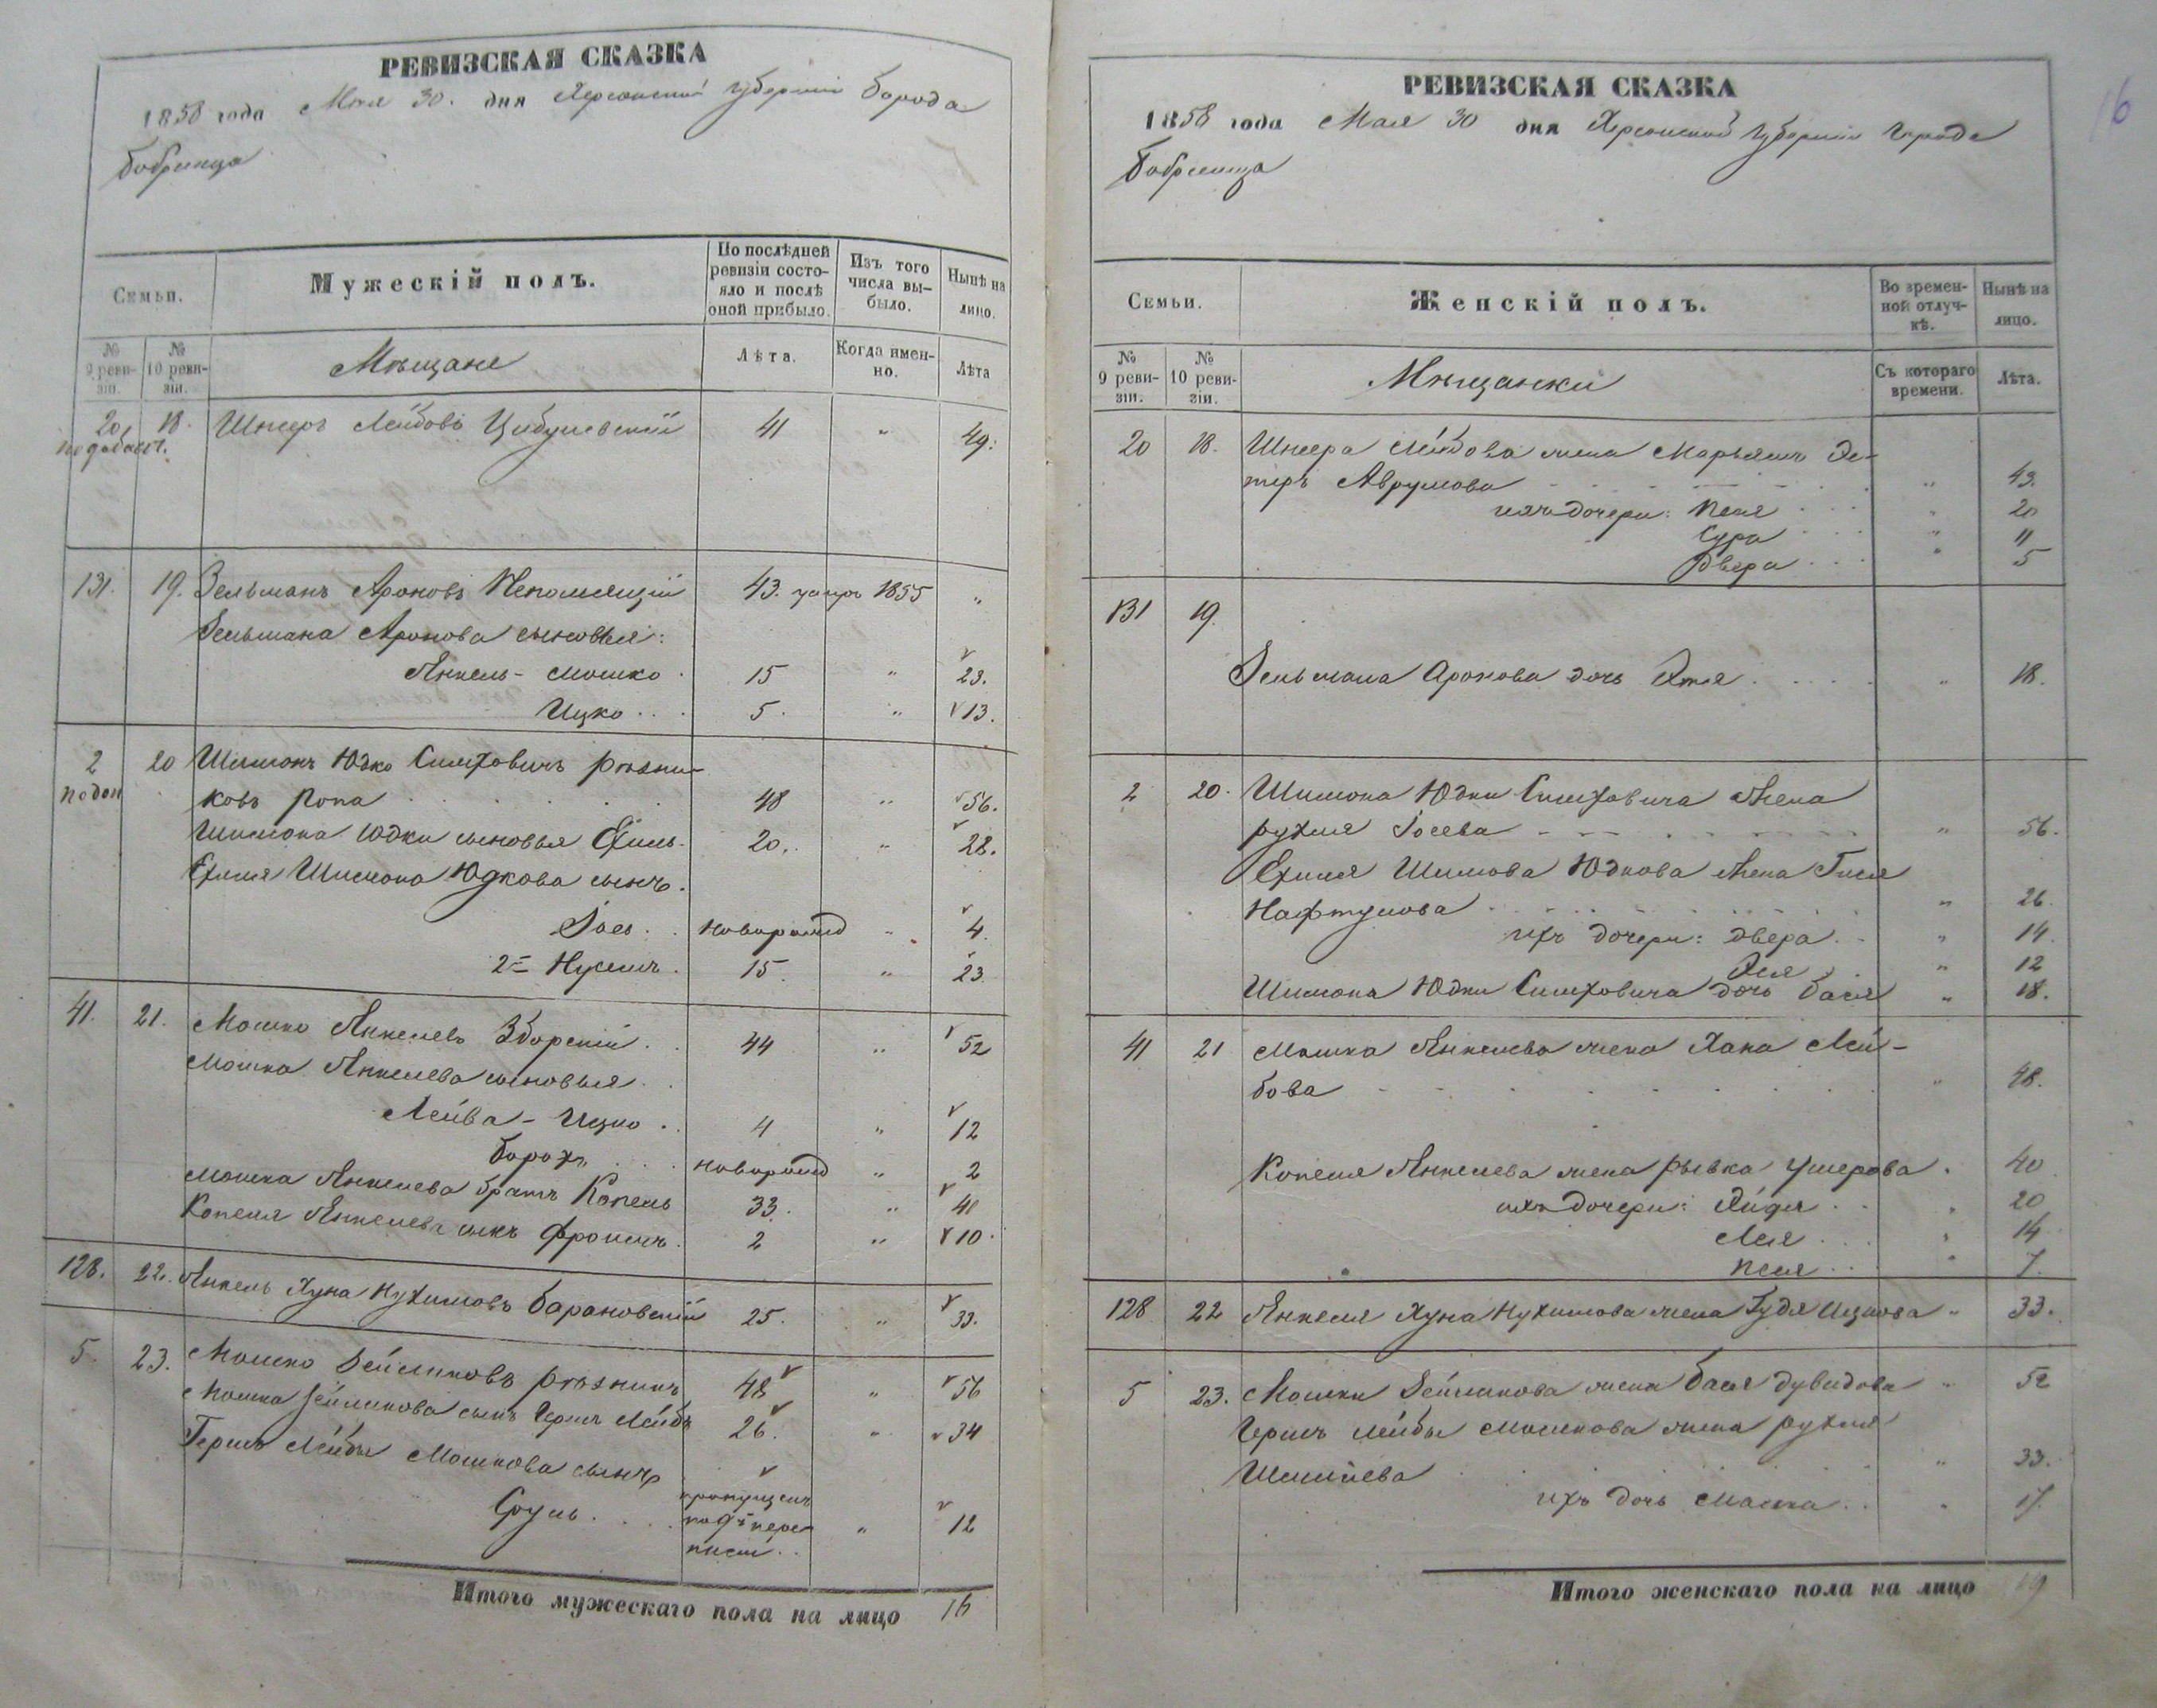 РЕВИЗСКАЯ СКАЗКА
1858 года Мая 30. дня Херсонской губерніи Города
Бобринца
Семьи.
Мужескій полъ.
По послѣдней ревизіи состояло и послѣ оной прибыло.
Изъ того числа выбыло.
Нынѣ на лицо.
№ 9 ревизіи.
№ 10 ревизіи.
Мѣщане
Лѣта.
Когда именно.
Лѣта
20 18. Шнеръ Лейбовъ Цибулевскій 41 " 49.
131. 19. Зельманъ Ароновъ Непомлящій 43. умеръ 1855 "
Зельмана Аронова сыновья:
Янкель - Мошко 15 " 23.
Ицко 5. " 13.
2 20 Шимонъ Юдко Симховичъ Рѣзни-
ковъ Ропа 48 " 56.
Шимона Юдки сыновья Ехиль 20. " 28.
Ехиля Шимона Юдкова сынъ.
Іось новорожд " 4.
2й Нусимъ 15 " 23
41. 21. Мошко Янкелевъ Зборскій 44 " 52
Мошка Янкелева сыновья
Лейба - Ицко 4 " 12
Борохъ новорожд " 2
Мошка Янкелева братъ Копель 33. " 41
Копеля Янкелева сынъ Фроимъ 2 " 10.
128. 22. Янкель Хуна Нухимовъ Барановскій 25. " 33.
5. 23. Мошко Зейликовъ Рѣзникъ 48 " 56
Мошка Зейликова сынъ Герш Лейбъ 26. " 34
Гершъ Лейбы Мошкова сынъ
Сруль пропущенъ по 9й переписи " 12
Итого мужескаго пола на лицо 16
16
РЕВИЗСКАЯ СКАЗКА
1858 года Мая 30 дня Херсонской губерніи Города
Бобринца
Семьи.
Женскій полъ.
Во временной отлучкѣ.
Нынѣ на лицо.
№ 9 ревизіи.
№ 10 ревизіи.
Мѣщанки
Съ котораго времени.
Лѣта.
20 18. Шнеера Лейбова жена Марьямъ Эс-
теръ Аврумова " 43.
ихъ дочери: Песя " 20
Сура " 11
Двера " 5
131 19.
Зельмана Аронова дочь Этя " 18.
2 20. Шимона Юдки Симховича жена
Рухля Іосева " 56.
Ехиля Шимова Юдкова жена Гися
Нафтулова " 26.
ихъ дочери: Двера " 14.
Лея " 12
Шимона Юдки Симховича дочь Бася " 18.
41 21 Мошка Янкелева жена Хана Лей-
бова " 48.
Копеля Янкелева жена Рывка Ушерова 40
ихъ дочери: Хайдя " 20
Лея " 14
Песя " 7.
128 22 Янкеля Хуна Нухимова жена Гудя Ицкова " 33.
5 23. Мошки Зейликова жена Бася Дувидова " 52
Гершъ Лейбы Мошкова жена Рухля
Шмилева " 33.
ихъ дочь Маска " 17.
Итого женскаго пола на лицо 19